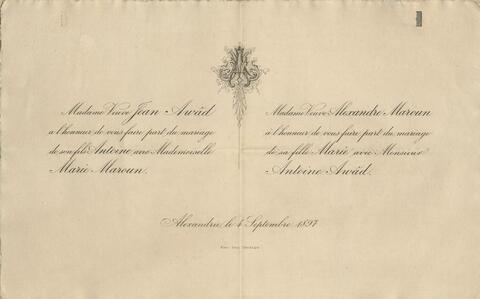 Madame Veuve Jean Awâd
a l'honneur de vous faire part du mariage
de son fils Antoine avec Mademoiselle
Marie Maroun.
Madame Veuve Alexandre Maroun
a l'honneur de vous faire part du mariage
de sa fille Marie avec Monsieur
Antoine Awâd.
Alexandrie, le 4 Septembre 1897